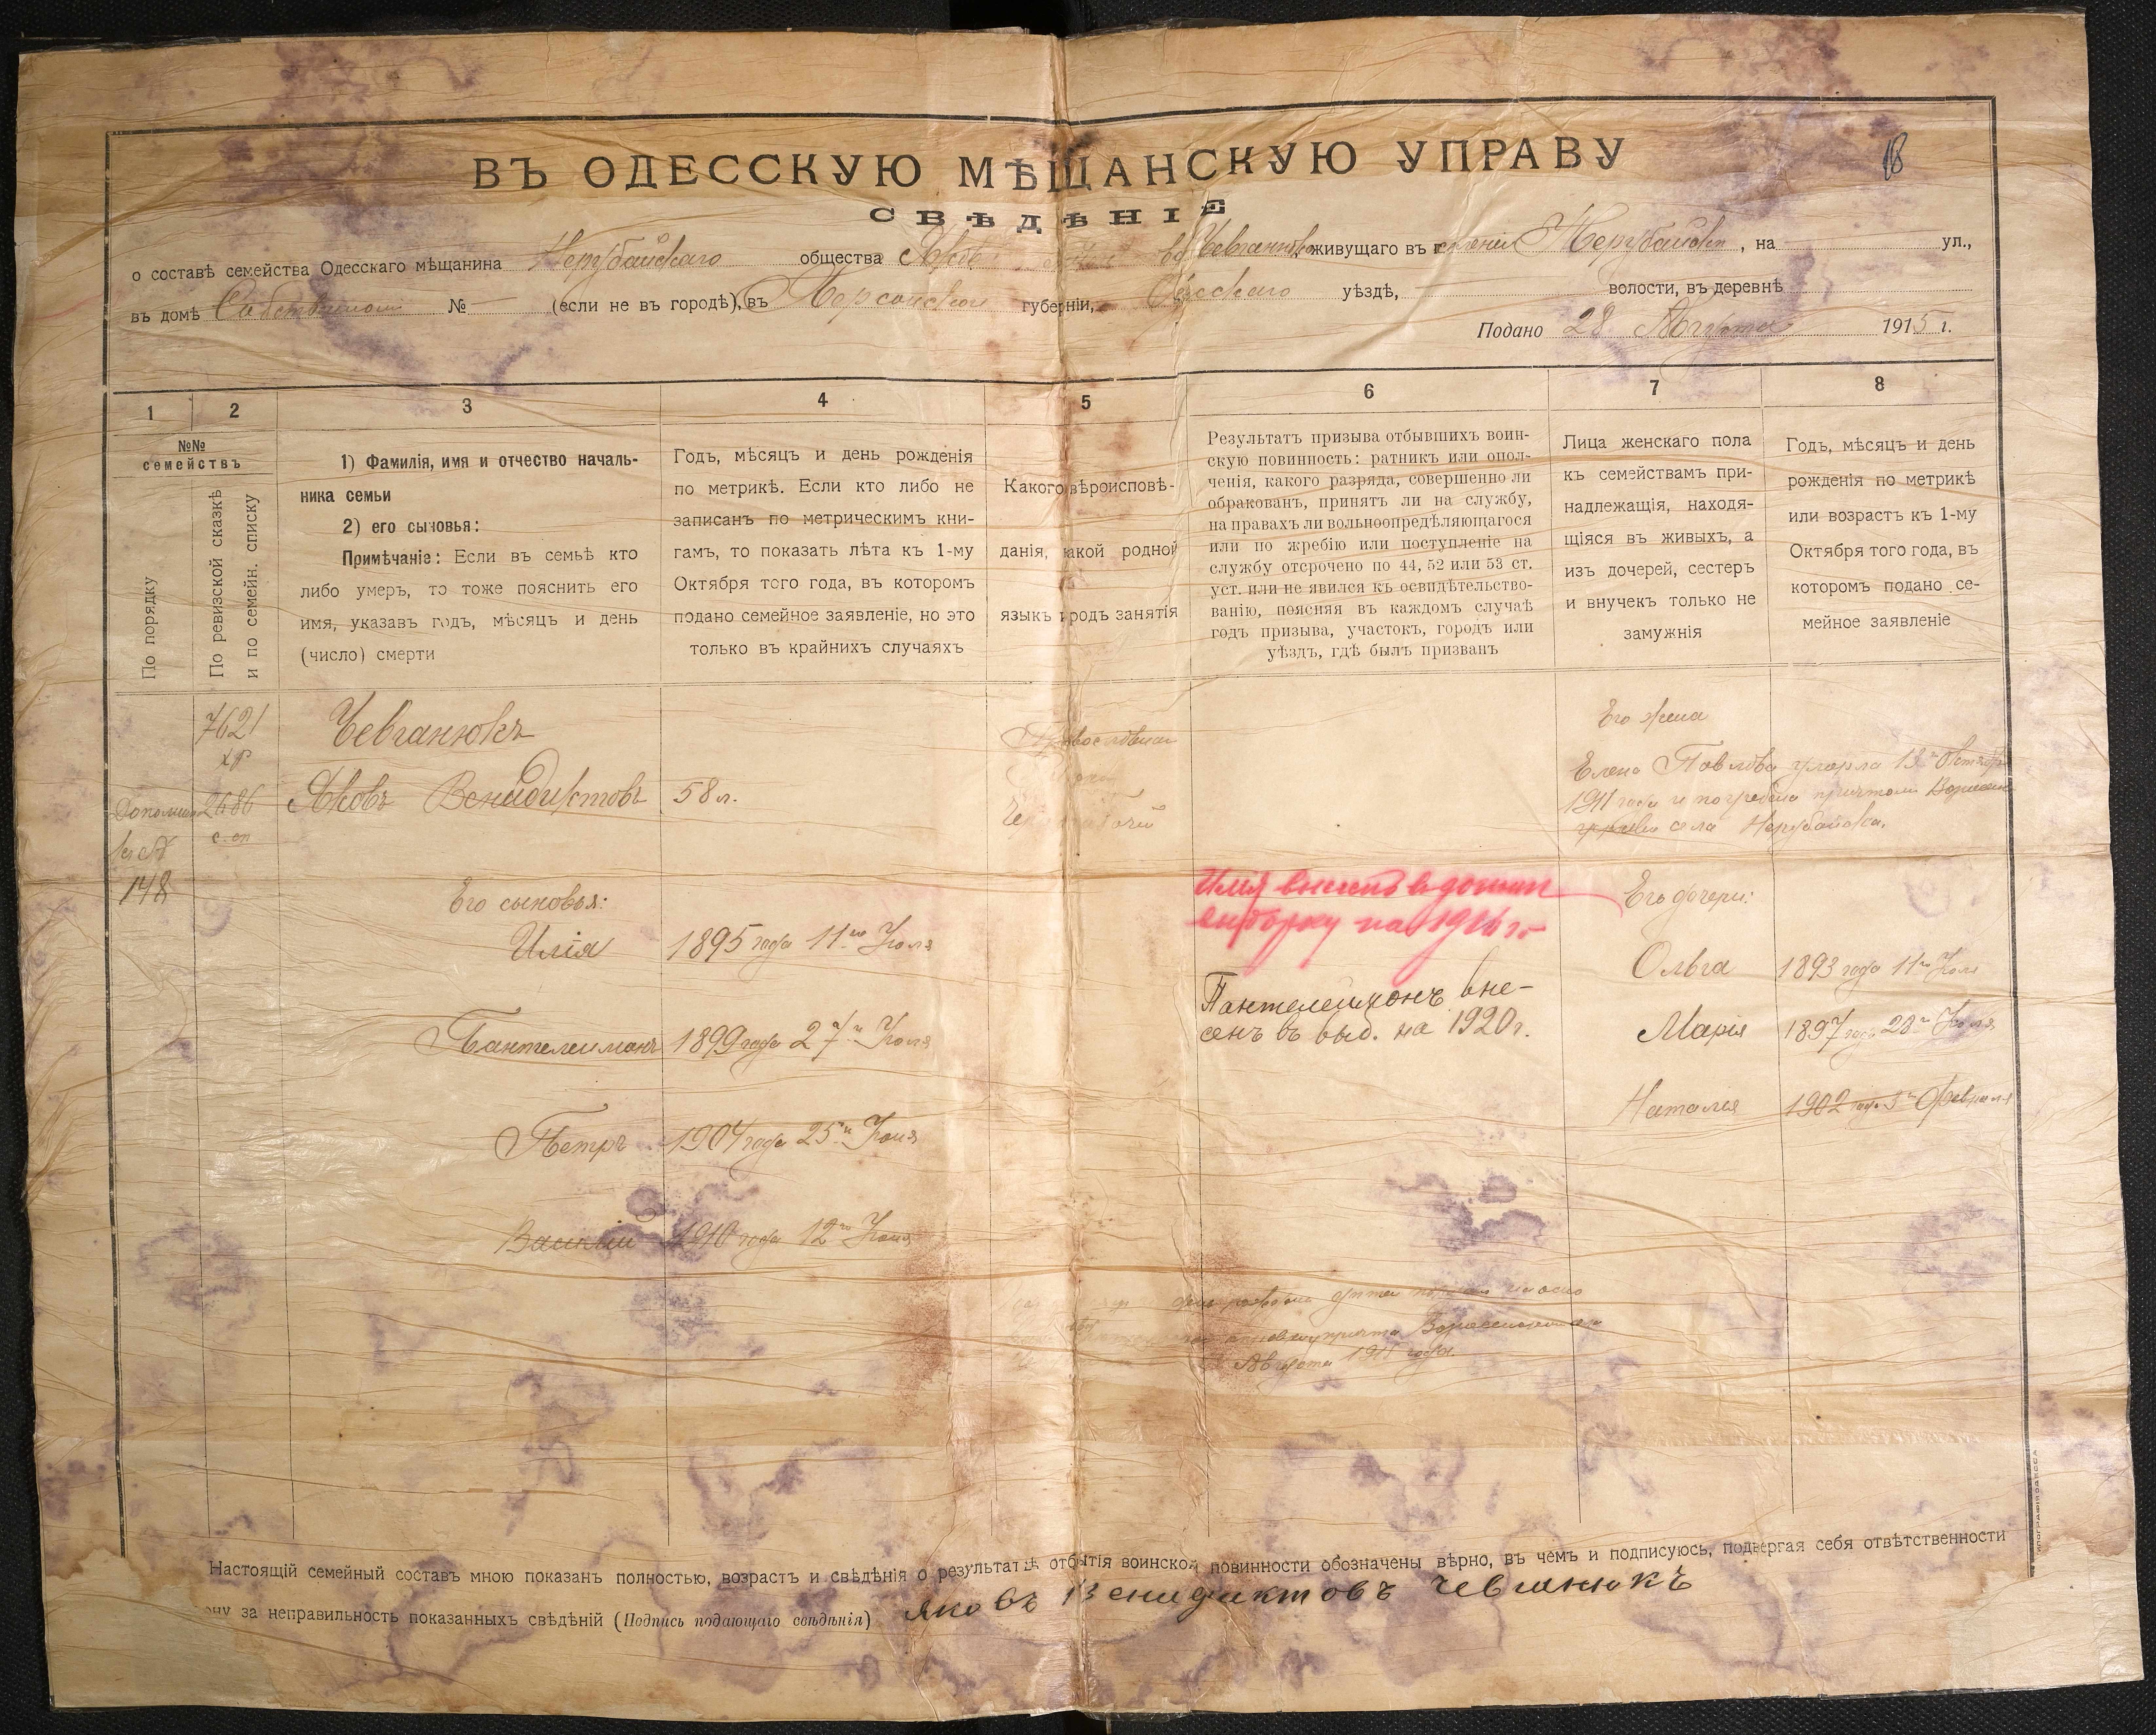 18
ВЪ ОДЕССКУЮ МѢЩАНСКУЮ УПРАВУ
СВѢДѢНІЕ
о составѣ семейства Одесскаго мѣщанина Нерубайскаго общества живущаго въ Нерубайскъ, на ул.,
въ домѣ Собственном № (если не въ городѣ), въ Херсонской губерніи, Одесскаго уѣздѣ, волости, въ деревнѣ
Подано 28 Августа 1915 г.
1 2 3 4 5 6 7 8
№№ семействъ
По порядку
По ревизской сказкѣ и по семейн. списку
1) Фамилія, имя и отчество началь-
ника семьи
2) его сыновья:
Примѣчаніе: Если въ семьѣ кто
либо умеръ, то тоже пояснить его
имя, указавъ годъ, мѣсяцъ и день
(число) смерти
Годъ, мѣсяцъ и день рожденія
по метрикѣ. Если кто либо не
записанъ по метрическимъ кни-
гамъ, то показать лѣта къ 1-му
Октября того года, въ которомъ
подано семейное заявленіе, но это
только въ крайнихъ случаяхъ
Какого вѣроисповѣ-
данія, какой родной
языкъ и родъ занятія
Результатъ призыва отбывшихъ воин-
скую повинность: ратникъ или опол-
ченія, какого разряда, совершенно ли
обракованъ, принятъ ли на службу,
на правахъ ли вольноопредѣляющагося
или по жребію или поступленіе на
службу отсрочено по 44, 52 или 53 ст.
уст. или не явился къ освидѣтельство-
ванію, поясняя въ каждомъ случаѣ
годъ призыва, участокъ, городъ или
уѣздъ, гдѣ былъ призванъ
Лица женскаго пола
къ семействамъ при-
надлежащія, находя-
щіяся въ живыхъ, а
изъ дочерей, сестеръ
и внучекъ только не
замужнія
Годъ, мѣсяцъ и день
рожденія по метрикѣ
или возрастъ къ 1-му
Октября того года, въ
которомъ подано се-
мейное заявленіе
7621
Чевганюкъ
Его жена
2686 Яковъ Венидиктовъ 58 л.
Елена Павлова умерла 13го Октября
1911 года и погребена причтом
церкви села Нерубайска.
148
Его сыновья:
Илія внесенъ в допол
выборку на 1916 г.
Его дочери:
Илія 1895 года 11го Іюля
Ольга 1893 года 11го Іюля
Пантелеймонъ вне-
сенъ въ выб. на 1920 г.
Пантелеимонъ 1899 года 27го Іюля
Марія 1897 года 28го Іюля
Наталія 1902 года Февраля
Петръ 1904 года 25го Іюня
Василій 1910 года 12го Іюня
Августа 1911 года.
Настоящій семейный составъ мною показанъ полностью, возрастъ и свѣдѣнія о результатѣ отбытія воинской повинности обозначены вѣрно, въ чемъ и подписуюсь, подвергая себя отвѣтственности
за неправильность показанныхъ свѣдѣній (Подпись подающаго свѣдѣнія) Яковъ Венидиктовъ Чевганюкъ